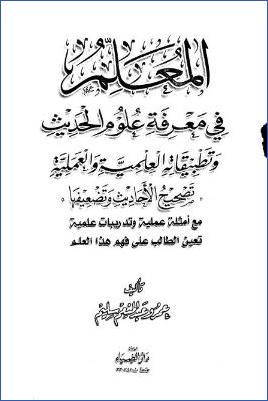 المعلم
في معرفة علوم الحديث
وتطبيقاته العلمية والعملية
" تصحيح الأحاديث وتضعيفها "
مع أمثلة عملية وتدريبات علمية
تعين الطالب على فهم هذا العلم
تأليف
عمرو عبد المنعم سليم
دار الضياء